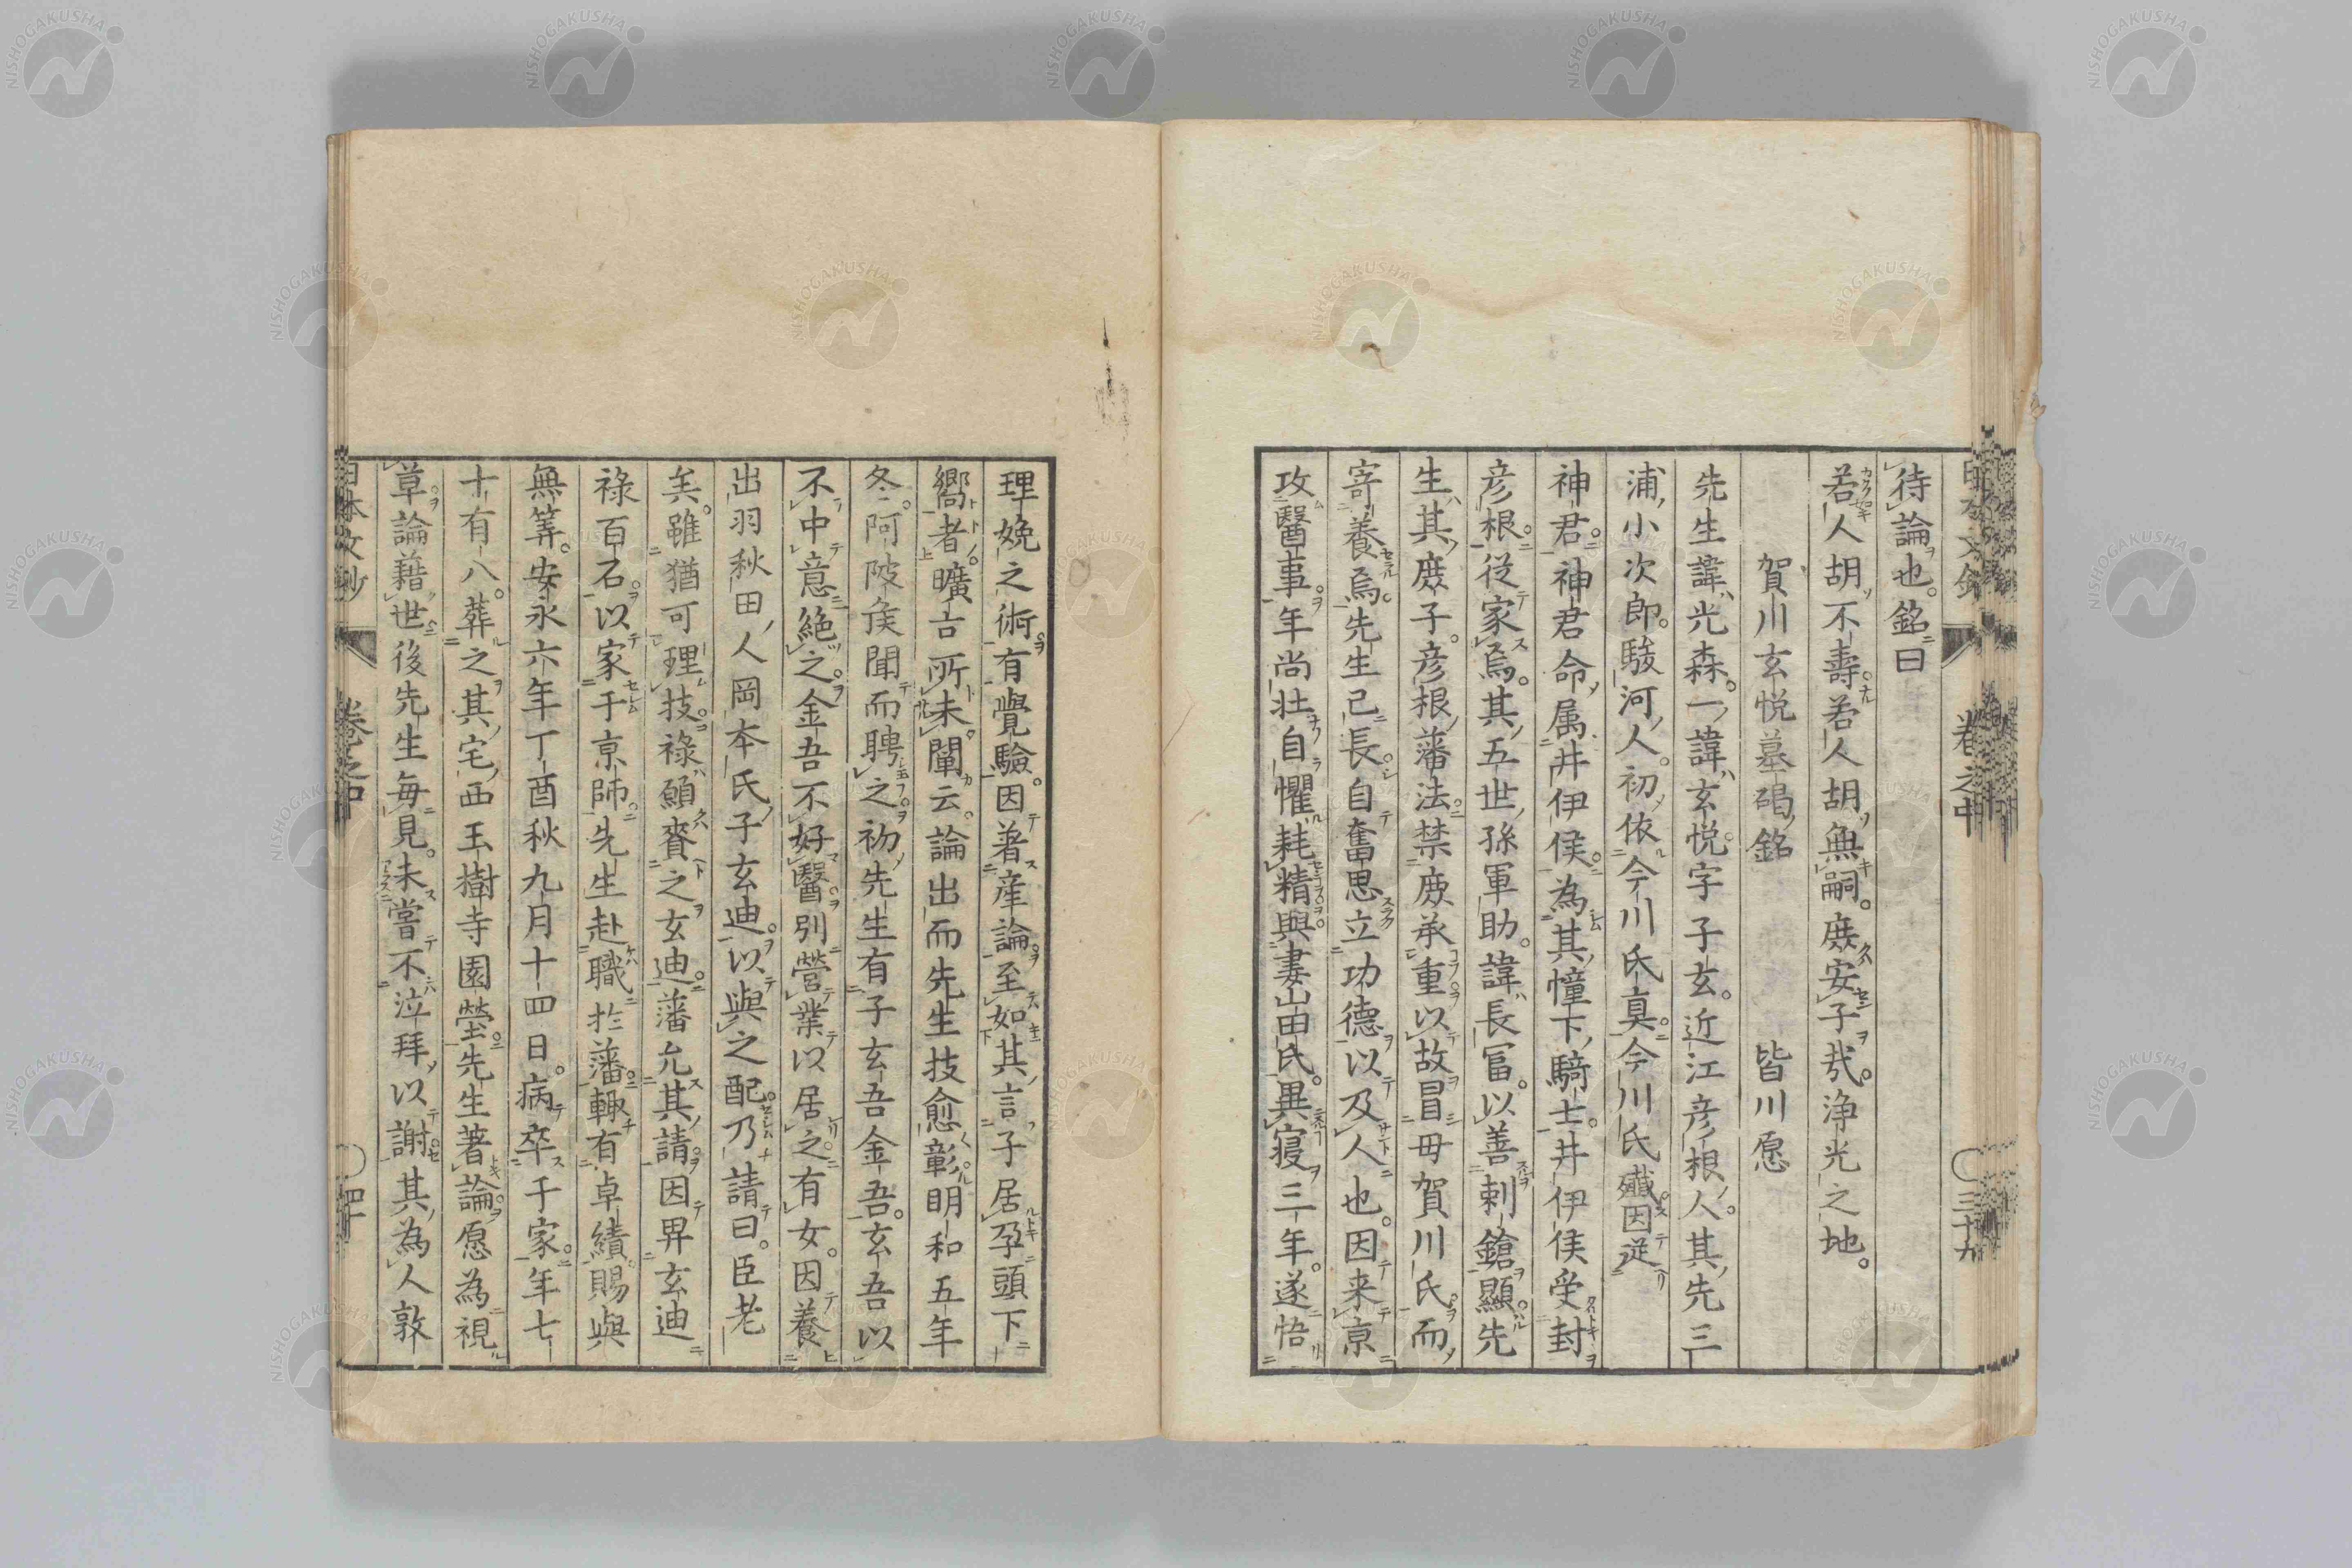 待論也。銘曰
若人胡不壽。若人胡無嗣。庶安子哉。浄光之地。
賀川玄悦墓碣銘 皆川愿
先生諱光森。一諱玄悦。字子玄。近江彦根人。其先三
浦小次郎。駿河人。初依今川氏真。今川氏殲。因從
神君。神君命属井伊侯。為其幢下騎士。井伊侯受封
彦根。從家焉。其五世孫軍助。諱長富。以善刺鎗顯。先
生其庶子。彦根藩法。禁庶承重。以故冒母賀川氏。而
寄養焉。先生已長。自奮思立功德以及人也。因来京
攻醫事。年尚壮。自懼耗精。與妻山田氏。異寢三年。遂悟
理娩之術。有覺驗。因著産論。至如其言子居孕頭下
嚮者。曠古所未闡云。論出而先生技愈彰。明和五年
冬。阿陂侯聞而聘之。初先生有子玄吾金吾。玄吾以
不中意絶之。金吾不好醫。別營業以居之。有女。因養
出羽秋田人岡本氏子玄迪。以與之配。乃請曰。臣老
矣。雖猶可理技。禄願賚之玄迪。藩允其請。因畀玄迪
禄百石。以家于京師。先生赴職於藩。輙有卓績。賜與
無筭。安永六年丁酉秋九月十四日。病卒于家。年七
十有八。葬之其宅西玉樹寺園塋。先生著論。愿為視
草。論藉世後。先生毎見。未嘗不泣拜。以謝其為人敦
日本文鈔 卷之中 四十
卷之中 三十九
NISHOGAKUSHA